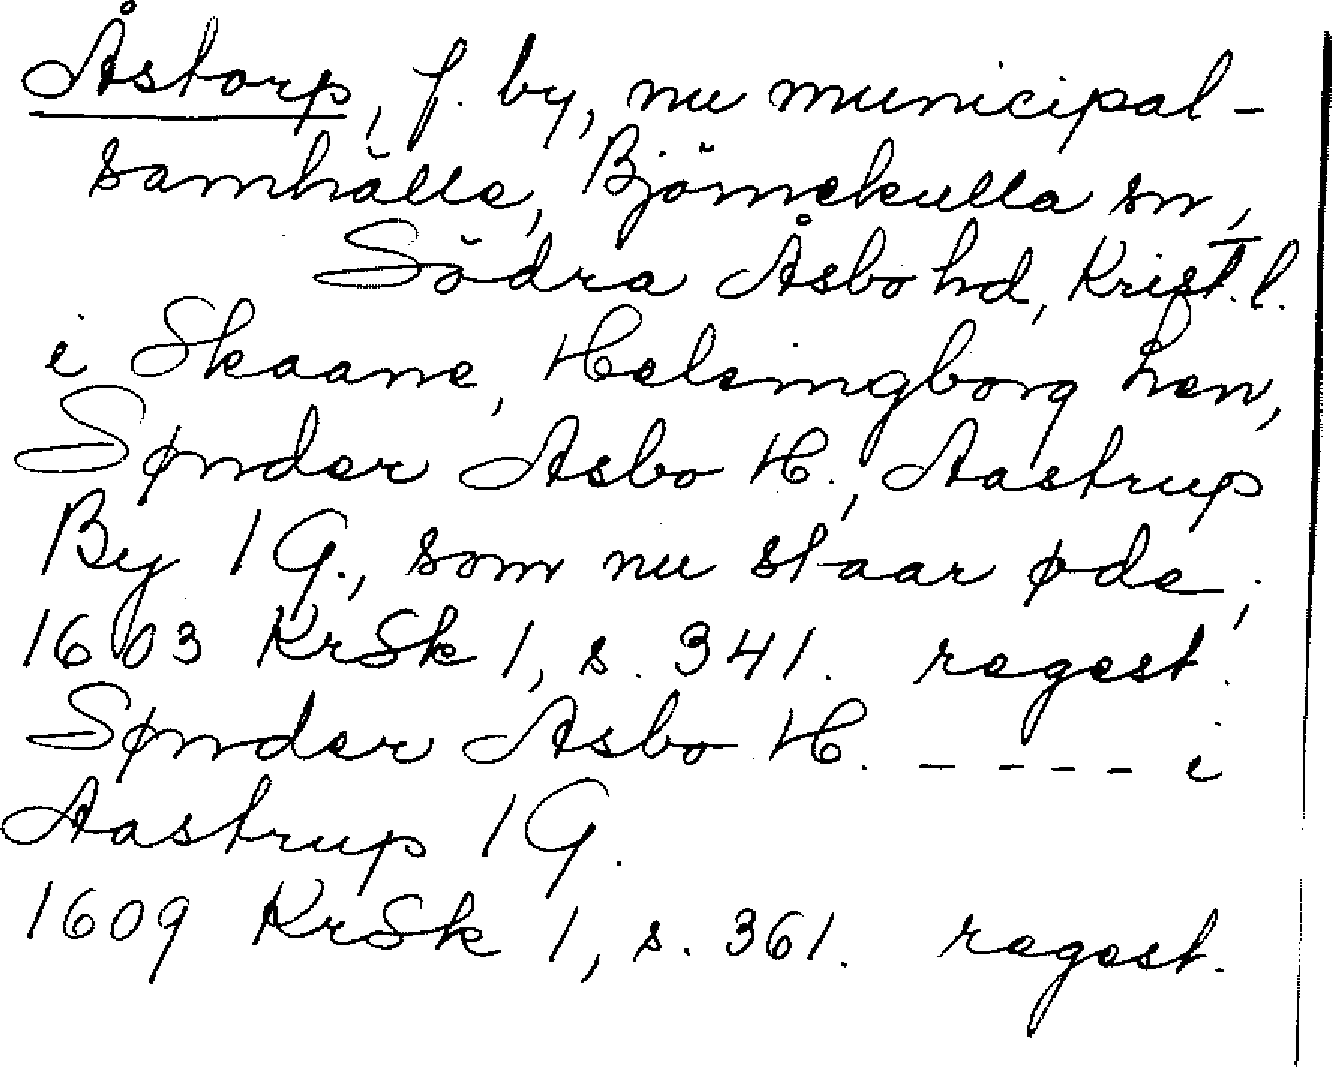 Åstorp, f. by, nu municipal-
samhälle, Björnekulla sn,
Södra Åsbo hd, Krist. l.
i Skaane, Helsingborg Len,
Sønder Asbo H., Aastrup
By 1 G., som nu staar øde,
1603 KrSk 1, s. 341. regest.
Sønder Asbo H. - - - - i
Aastrup 1 G.
1609 KrSk 1, s. 361. regest.